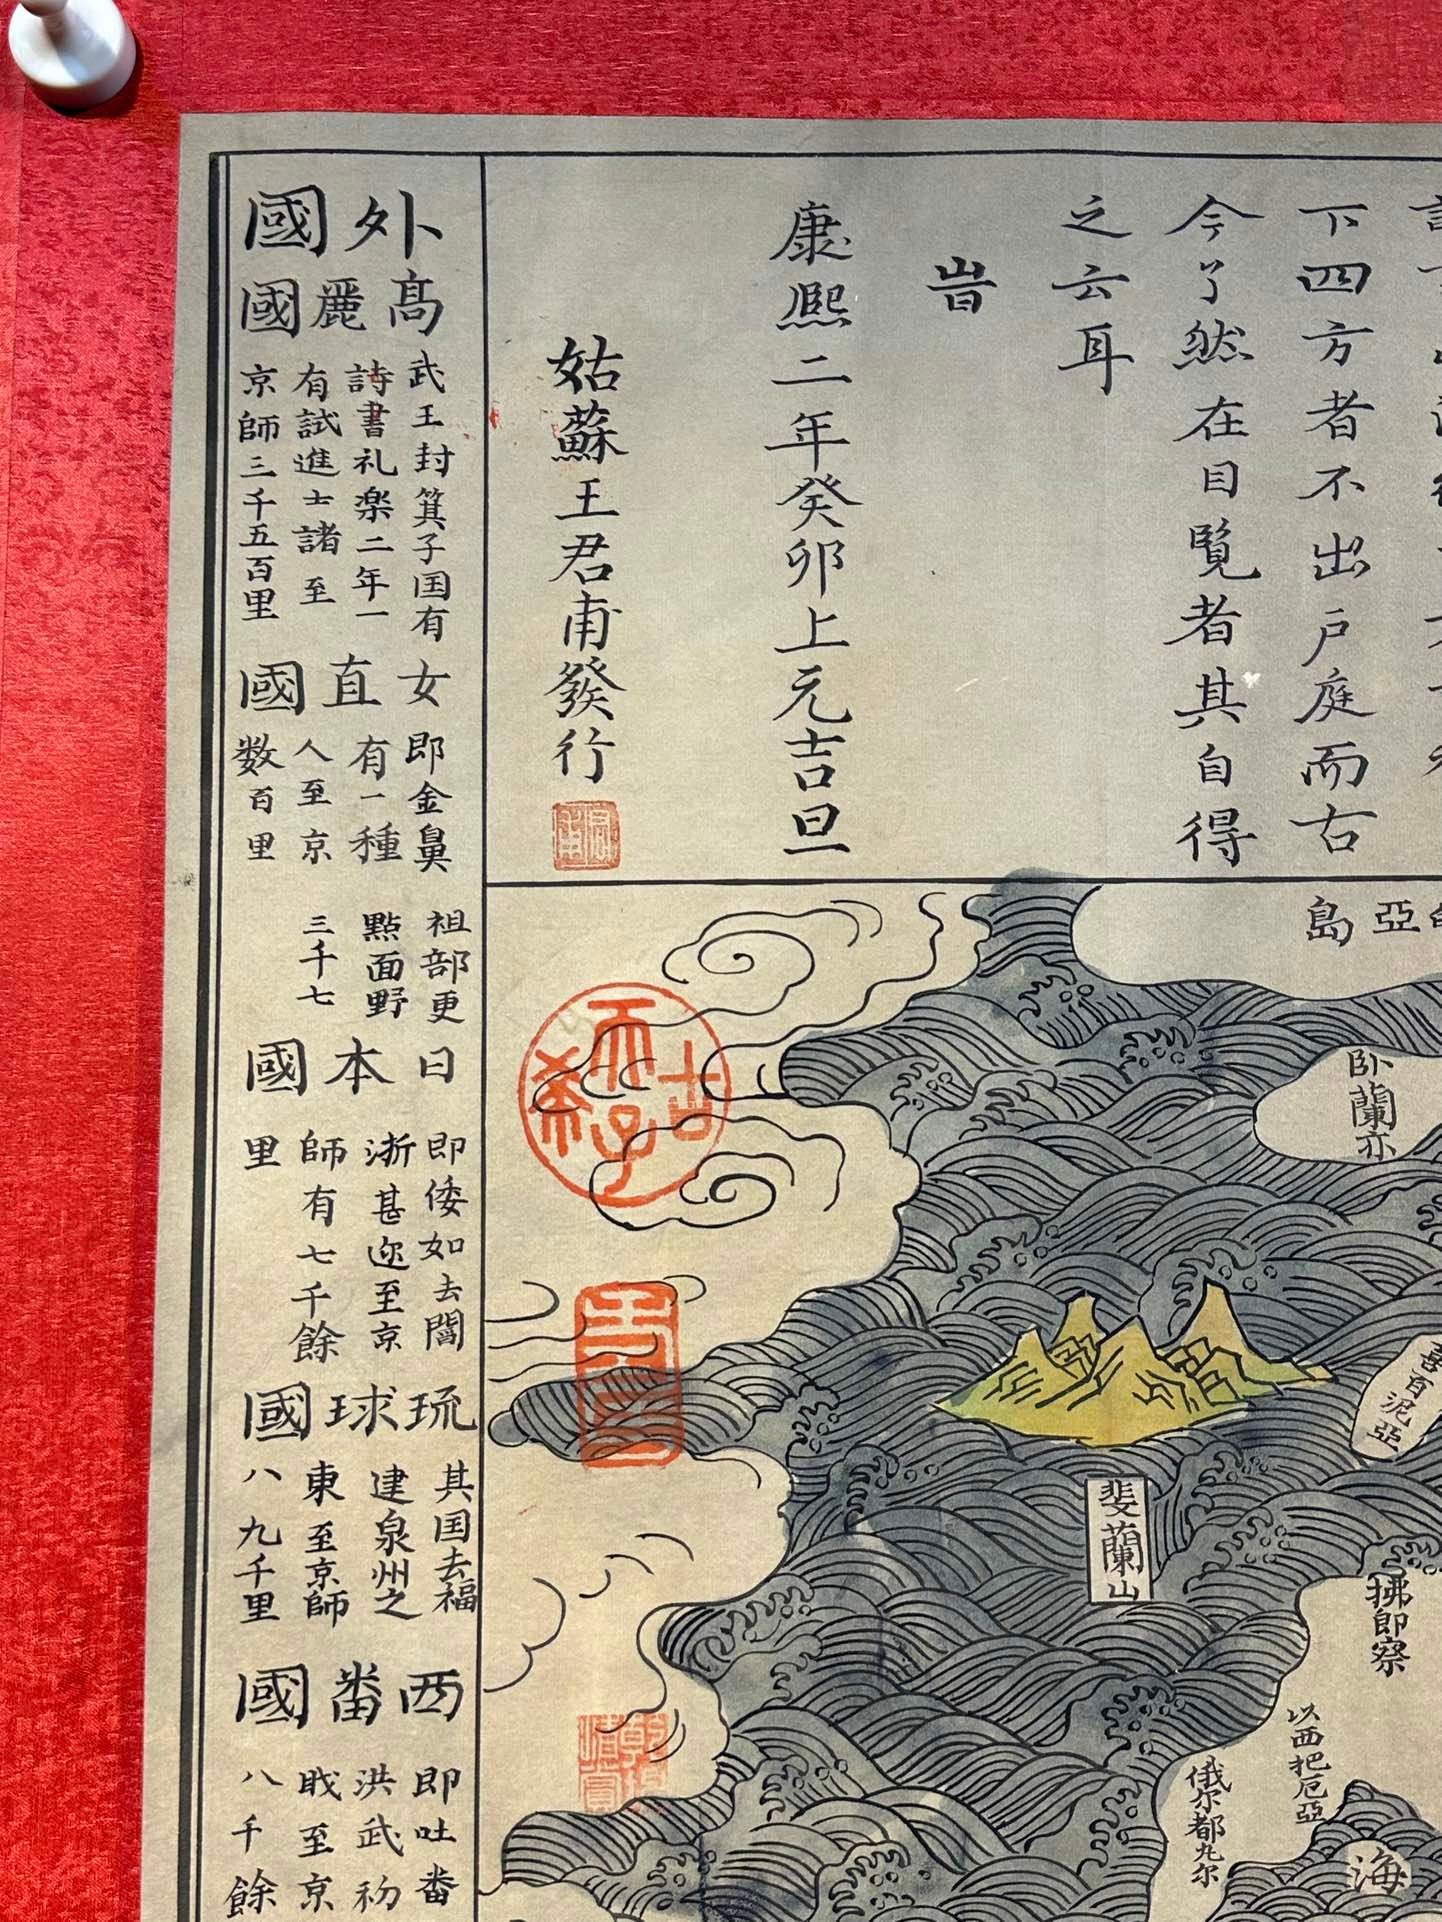 下四方者不出戶庭而右
今了然在目覧者其自得
之云耳
旹
康熈二年癸卯上元吉旦
姑蘇王君甫發行
外國
高麗國
武王封箕子国有
詩書礼楽二年一
有試進士諸至
京師三千五百里
女直國
即金
祖部更
有一種
點面野
人至京
三千七
数百里
日本國
即倭如去閩
浙甚迩至京
師有七千餘
里
琉球國
其国去福
建泉州之
東至京師
八九千里
西番國
即吐番
洪武初
至京
八千餘
亞島
卧蘭亦
喜百泥亞
斐蘭山
拂郎察
以西把厄亞
俄尔都九尔
海
古希天子